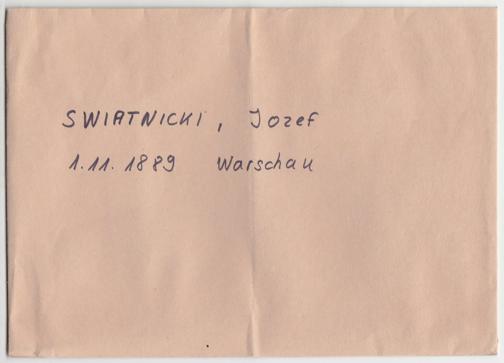 SWIATNICKI, Jozef
1.11.1889 Warschau